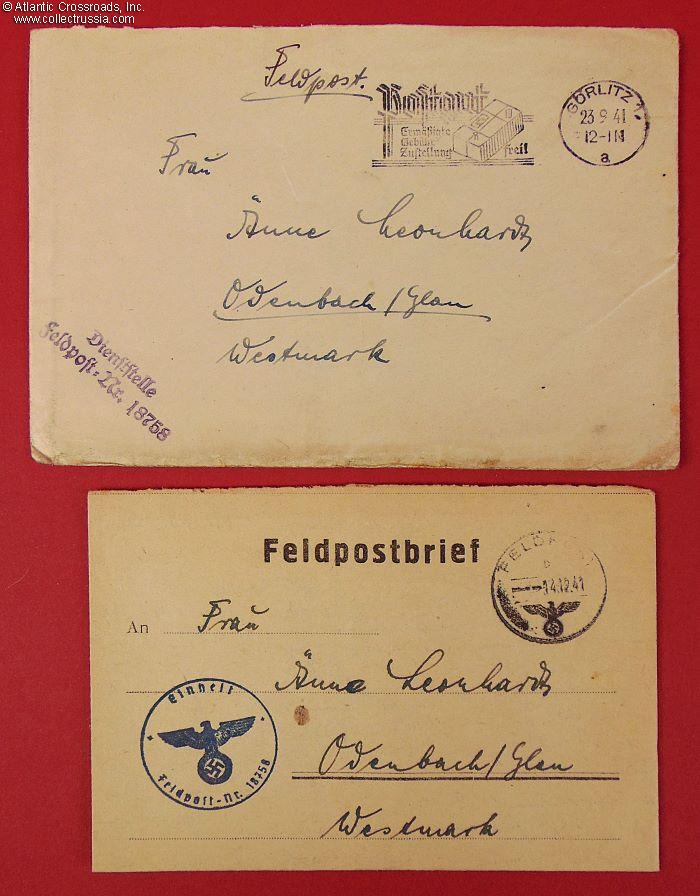 © Atlantic Crossroads, Inc.
www.collectrussia.com
Feldpost.
Ermäßigte
Gebühr
Zustellung frei!
GÖRLITZ 1
23.9.41
12-1N
a
Frau
Änne Leonhardt
Odenbach/Glan
Westmark
Dienststelle
Feldpost-Nr. 18758
Feldpostbrief
b
14.12.41
An Frau
Änne Leonhardt
Odenbach/Glan
Westmark
Einheit
Feldpost-Nr. 18758